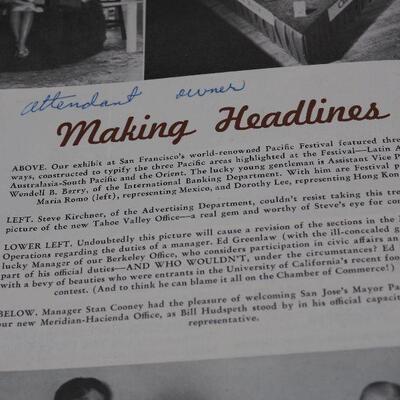 attendant owner
Making Headlines
ABOVE. Our exhibit at San Francisco's world-renowned Pacific Festival featured three
ways, constructed to typify the three Pacific areas highlighted at the Festival—Latin A
Australasia-South Pacific and the Orient. The lucky young gentleman is Assistant Vice P
Wendell B. Berry, of the International Banking Department. With him are Festival
Maria Romo (left), representing Mexico, and Dorothy Lee, representing Hong Kon
LEFT. Steve Kirchner, of the Advertising Department, couldn't resist taking this
picture of the new Tahoe Valley Office—a real gem and worthy of Steve's eye for
LOWER LEFT. Undoubtedly this picture will cause a revision of the sections in the
Operations regarding the duties of a manager. Ed Greenlaw (with the ill-concealed
lucky Manager of our Berkeley Office, who considers participation in civic affairs an
part of his official duties—AND WHO WOULDN'T, under the circumstances? Ed
with a bevy of beauties who were entrants in the University of California's recent foo
contest. (And to think he can blame it all on the Chamber of Commerce!)
BELOW. Manager Stan Cooney had the pleasure of welcoming San Jose's Mayor Pa
our new Meridian-Hacienda Office, as Bill Hudspeth stood by in his official capacit
representative.